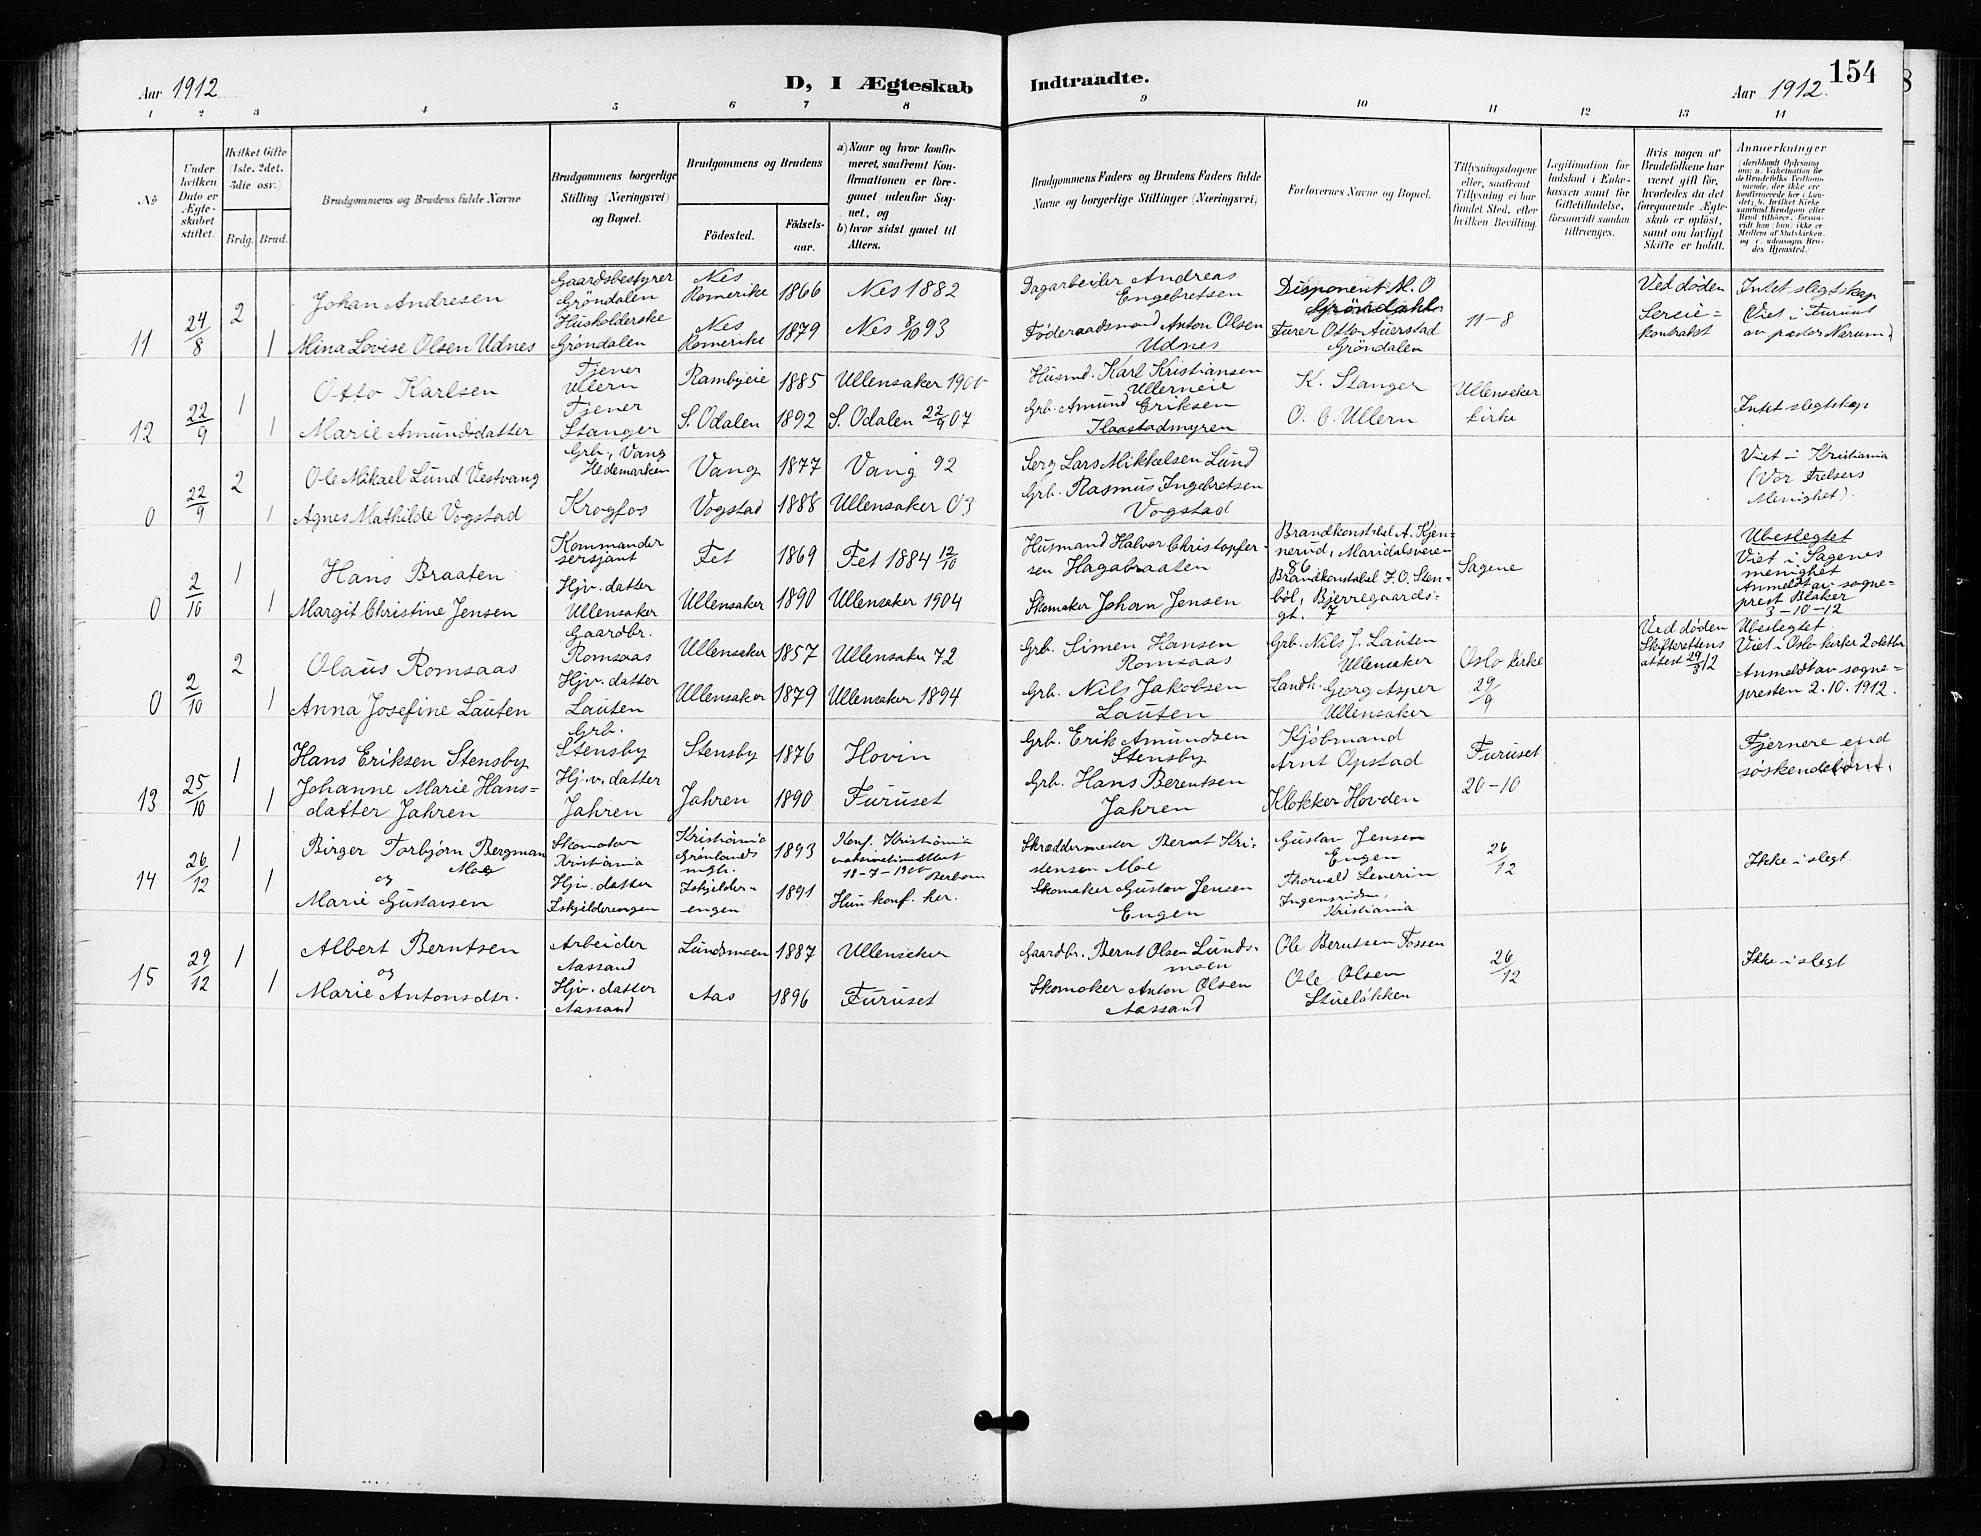 Aar 1912
D, I Ægteskab
Indtraadte.
Aar 1912.
154
1 2 3 4 5 6 7 8 9 10 11 12 13 14
No
Under hvilken Dato er Ægteskabet stiftet.
Hvilket Gifte (1ste, 2det, 3die osv.)
Brdg. Brud.
Brudgommens og Brudens fulde Navne
Brudgommens borgerlige Stilling (Næringsvei) og Bopæl.
Brudgommens og Brudens
Födested.
Födselsaar.
a) Naar og hvor konfirmeret, saafremt Konfirmationen er foregaaet udenfor Sognet, og
b) hvor sidst gaaet til Alters.
Brudgommens Faders og Brudens Faders fulde Navne og borgerlige Stillinger (Næringsvei)
Forlovernes Navne og Bopæl.
Tillysningsdagene eller, saafremt Tillysning ei har fundet Sted, efter hvilken Bevilling.
Legitimation for Indskud i Enkekassen samt for Giftetilladelse, forsaavidt saadan tiltrænges.
Hvis nogen af Brudefolkene har været gift för, hvorledes da det foregaaende Ægteskab er oplöst, samt om lovligt Skifte er holdt.
Anmærkninger
11 24/8 2 1
Johan Andresen
Mina Lovise Olsen Udnes
Gaardsbestyrer
Gröndalen
Husholderske
Gröndalen
Nes
Romerike 1866 Nes 1882
Nes
Romerike 1879 Nes 8/10 93
Dagarbeider Andreas
Engebretsen
Föderaadsmand Anton Olsen
Udnes
Disponent M. O
Gröndahl
Furer Otto Auerstad
Gröndalen
11-8
Ved døden
Sereie=
kontrakt
Intet slegtskap
Viet i Furuset
av pastor Nærum.
12 22/9 1 1
Otto Karlsen
Marie Amundsdatter
Tjener
Ullern
Tjener
Stanger
Rambyeie 1885 Ullensaker 1900
S. Odalen 1892 S. Odalen 22/9 07
Husmd. Karl Kristiansen
Ullerneie
Grb. Amund Eriksen
Haastadmyren
K. Stanger
O. C. Ullern
Ullensaker
kirke
Intet slegtskap
0 22/9 2 1
Ole Mikael Lund Vestvang
Agnes Mathilde Vogstad
Grb, Vang
Hedemarken
Krogfos
Vang 1877 Vang 92
Vogstad 1888 Ullensaker 03
Serg Lars Mikkelsen Lund
Grb. Rasmus Ingebretsen
Vogstad
Viet i Kristiania
(Vor Frelsers
Menighet).
0 2/10 1 1
Hans Braaten
Margit Christine Jensen
Kommander
sersjant
Hjv. datter
Ullensaker
Fet 1869 Fet 1884 12/10
Ullensaker 1890 Ullensaker 1904
Husmand Halvor Christopfer-
sen Hagabraaten
Skomaker Johan Jensen
Brandkonstabel A. Kjen-
nerud, Maridalsveien
86
Brandkonstabel J. O. Sten=
böl, Bjerregaards-
gt. 7
Sagene
Ubeslegtet
Viet i Sagenes
menighet
Anmeldt av sogne-
prest Blaker
3-10-12
0 2/10 2 1
Olaus Romsaas
Anna Josefine Lauten
Gaardbr.
Romsaas
Hjv. datter
Lauten
Ullensaker 1857 Ullensaker 72
Ullensaker 1879 Ullensaker 1894
Grb. Simen Hansen
Romsaas
Grb. Nils Jakobsen
Lauten
Grb. Nils J. Lauten
Ullensaker
Landh. Georg Asper
Ullensaker
Oslo kirke
29/9
Ved døden
Skifterettens
attest 29/3 12
Ubeslegtet
Viet i Oslo kirke 2 oktbr
Anmeldt av sogne=
presten 2.10.1912.
13 25/10 1 1
Hans Eriksen Stensby
Johanne Marie Hans=
datter Jahren
Grb.
Stensby
Hj.v. datter
Jahren
Stensby 1876 Hovin
Jahren 1890 Furuset
Grb. Erik Amundsen
Stensby
Grb. Hans Berentsen
Jahren
Kjöbmand
Arnt Opstad
Klokker Hovden
Furuset
20-10
Fjernere end
søskendebørn.
14 26/12 1 1
Birger Torbjørn Bergman
Moe
og
Marie Gustavsen
Skomaker
Kristiania
Hjv. datter
Iskjelderengen
Kristiania
Grønlands
mgh. 1893
Iskjelder=
engen 1891
Konf. Kristiania
vaksinationsattest
18-7-1900
Hun konf. her.
Skreddermester Bernt Kri-
stensen Moe
Skomaker Gustav Jensen
Engen
Gustav Jensen
Engen
Thorvald Severin
Ingensruden,
Kristiania
26/12
Ikke i slegt.
15 29/12 1 1
Albert Berntsen
og
Marie Antonsdtr.
Arbeider
Aassand
Hjv. datter
Aassand
Lundsmoen 1887 Ullensaker
Aas 1896 Furuset
Gaardbr. Bernt Olsen Lunds-
moen
Skomaker Anton Olsen
Aassand
Ole Berntsen Fossen
Ole Olsen
Stuelökken
26/12
Ikke i slegt